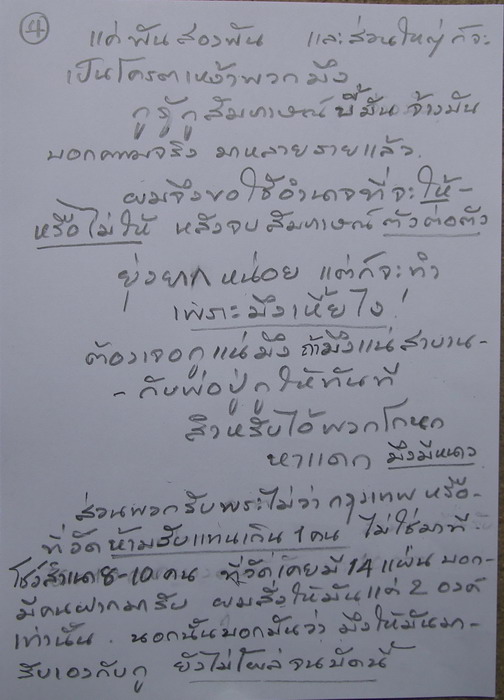 4
แค่พันสองพัน และส่วนใหญ่ก็จะ
เป็นโครตเหง้าพวกมึง
กูรู้กูสัมภาษณ์ พี้มัน จ้างมัน
บอกความจริง มาหลายรายแล้ว.
ผมจึงขอใช้อำนาจที่จะให้-
หรือไม่ให้ หลังจบสัมภาษณ์ ตัวต่อตัว
ยุ่งยากหน่อย แต่ก็จะทำ
เพราะมึงเหี้ยไง!
ต้องเจอกูแน่มึง ถ้ามึงแน่สาบาน-
- กับพ่อปู่กูให้ทันที
สำหรับไอ้พวกโกหก
หาแดก มึงมีหนาว
ส่วนพวกรับพระไม่ว่ากรุงเทพ หรือ-
ที่วัดห้ามรับแทนเกิน 1 คน ไม่ใช่มาที
โชว์สำเนา 8-10 คน ที่วัดเคยมี 14 แผ่น บอก-
มีคนฝากมารับ ผมสั่งให้มันแค่ 2 องค์
เท่านั้น. นอกนั้นบอกมันว่า มึงให้มันมา-
รับเองกับกู ยังไม่โผล่จนบัดนี้